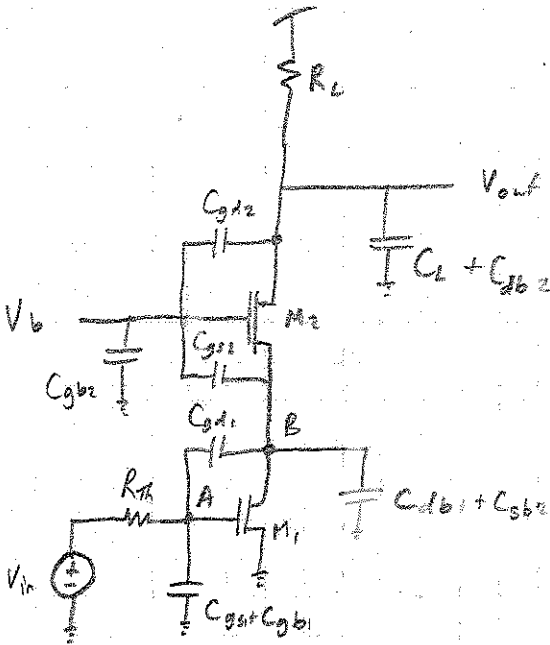 R_L
V_out
C_gd2
C_L + C_db2
V_b
M_2
C_gs2
C_gb2
C_gd1
B
R_Th
A
C_db1 + C_sb2
M_1
V_in
+
-
C_gs1 + C_gb1